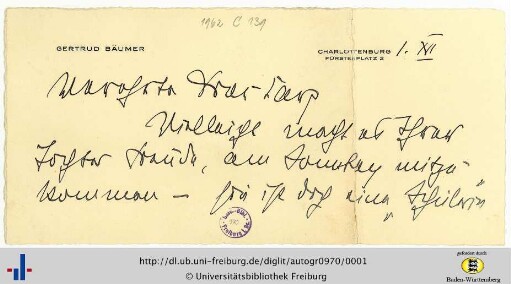 1962 C 131
GERTRUD BÄUMER
CHARLOTTENBURG
FÜRSTENPLATZ 2
1. XII
Verehrte Frau Karp
Vielleicht macht es Ihrer
Tochter Freude, am Sonntag mitzu-
kommen – sie ist doch eine „Schülerin"
http://dl.ub.uni-freiburg.de/diglit/autogr0970/0001
© Universitätsbibliothek Freiburg
gefördert durch
Baden-Württemberg